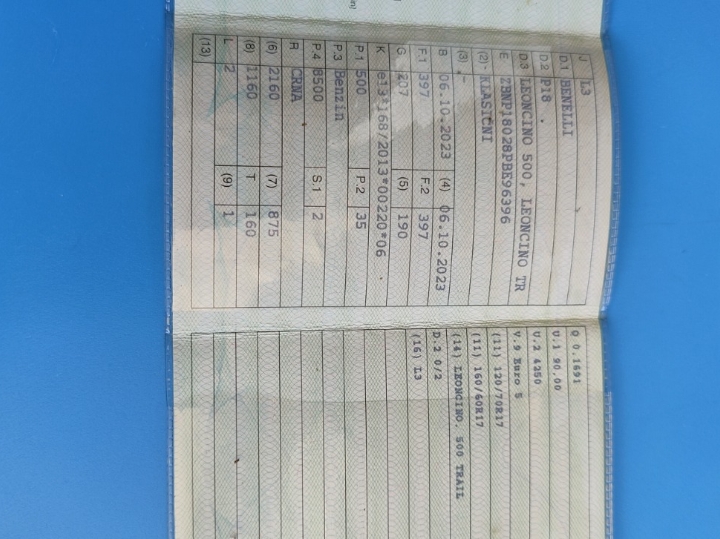 J L3
D.1 BENELLI
D.2 P18 .
D.3 LEONCINO 500, LEONCINO TR
E ZBNP18028PBE96396
(2) KLASIČNI
(3) -
B 06.10.2023 (4) 06.10.2023
F.1 397 F.2 397
G 207 (5) 190
K e13*168/2013*00220*06
P.1 500 P.2 35
P.3 Benzin
P.4 8500 S.1 2
R CRNA
(6) 2160 (7) 875
(8) 1160 T 160
L 2 (9) 1
(13)
Q 0.1691
U.1 90.00
U.2 4250
V.9 Euro 5
(11) 120/70R17
(11) 160/60R17
(14) LEONCINO. 500 TRAIL
D.2 0/2
(16) L3